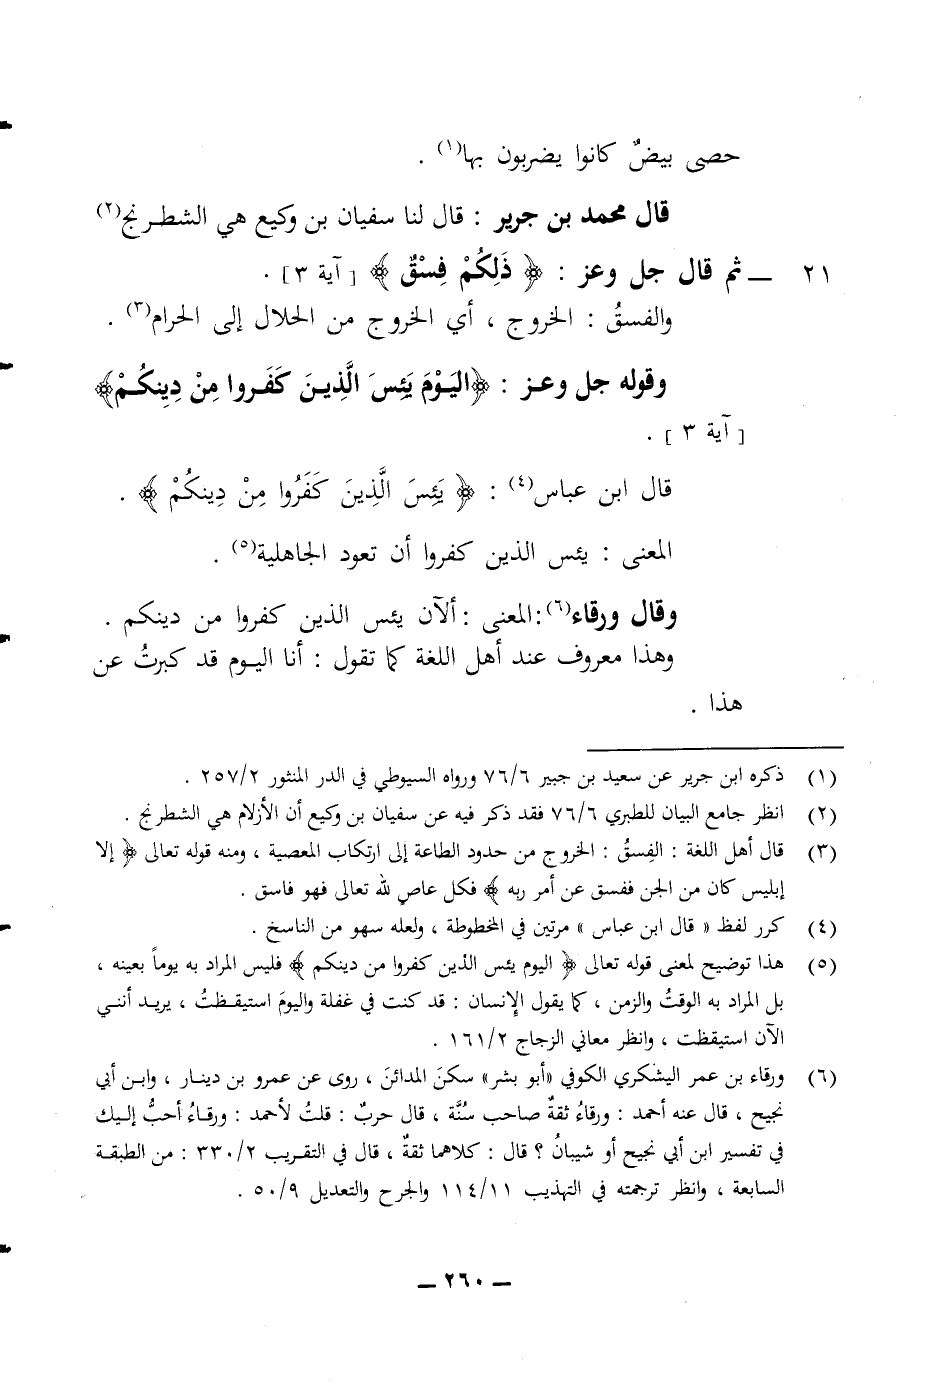 حصى بيضٌ كانوا يضربون بها(١) .
قال محمد بن جرير : قال لنا سفيان بن وكيع هي الشطرنج(٢)
٢١ ــ ثم قال جل وعز : ﴿ ذَلِكُمْ فِسْقٌ ﴾ [ آية ٣ ] .
والفسقُ : الخروج ، أي الخروج من الحلال إلى الحرام(٣) .
وقوله جل وعز : ﴿اليَوْمَ يَئِسَ الَّذِينَ كَفَروا مِنْ دِينِكُمْ﴾
[ آية ٣ ] .
قال ابن عباس(٤) : ﴿ يَئِسَ الَّذِينَ كَفَرُوا مِنْ دِينِكُمْ ﴾ .
المعنى : يئس الذين كفروا أن تعود الجاهلية(٥) .
وقال ورقاء(٦):المعنى : ألآن يئس الذين كفروا من دينكم .
وهذا معروف عند أهل اللغة كما تقول : أنا اليوم قد كبرتُ عن
هذا .
(١) ذكره ابن جرير عن سعيد بن جبير ٧٦/٦ ورواه السيوطي في الدر المنثور ٢٥٧/٢ .
(٢) انظر جامع البيان للطبري ٧٦/٦ فقد ذكر فيه عن سفيان بن وكيع أن الأزلام هي الشطرنج .
(٣) قال أهل اللغة : الفِسقُ : الخروج من حدود الطاعة إلى ارتكاب المعصية ، ومنه قوله تعالى ﴿ إلا
إبليس كان من الجن ففسق عن أمر ربه ﴾ فكل عاصٍ لله تعالى فهو فاسق .
(٤) كرر لفظ « قال ابن عباس » مرتين في المخطوطة ، ولعله سهو من الناسخ .
(٥) هذا توضيح لمعنى قوله تعالى ﴿ اليوم يئس الذين كفروا من دينكم ﴾ فليس المراد به يوماً بعينه ،
بل المراد به الوقتُ والزمن ، كما يقول الإنسان : قد كنت في غفلة واليومَ استيقظتُ ، يريد أنني
الآن استيقظت ، وانظر معاني الزجاج ١٦١/٢ .
(٦) ورقاء بن عمر اليشكري الكوفي «أبو بشر» سكنَ المدائنَ ، روى عن عمرو بن دينار ، وابن أبي
نجيح ، قال عنه أحمد : ورقاءُ ثقةٌ صاحب سُنَّة ، قال حربٌ : قلتُ لأحمد : ورقاءُ أحبُّ إليك
في تفسير ابن أبي نجيح أو شيبانُ ؟ قال : كلاهما ثقةٌ ، قال في التقريب ٣٣٠/٢ : من الطبقة
السابعة ، وانظر ترجمته في التهذيب ١١٤/١١ والجرح والتعديل ٥٠/٩ .
ــ ٢٦٠ ــ